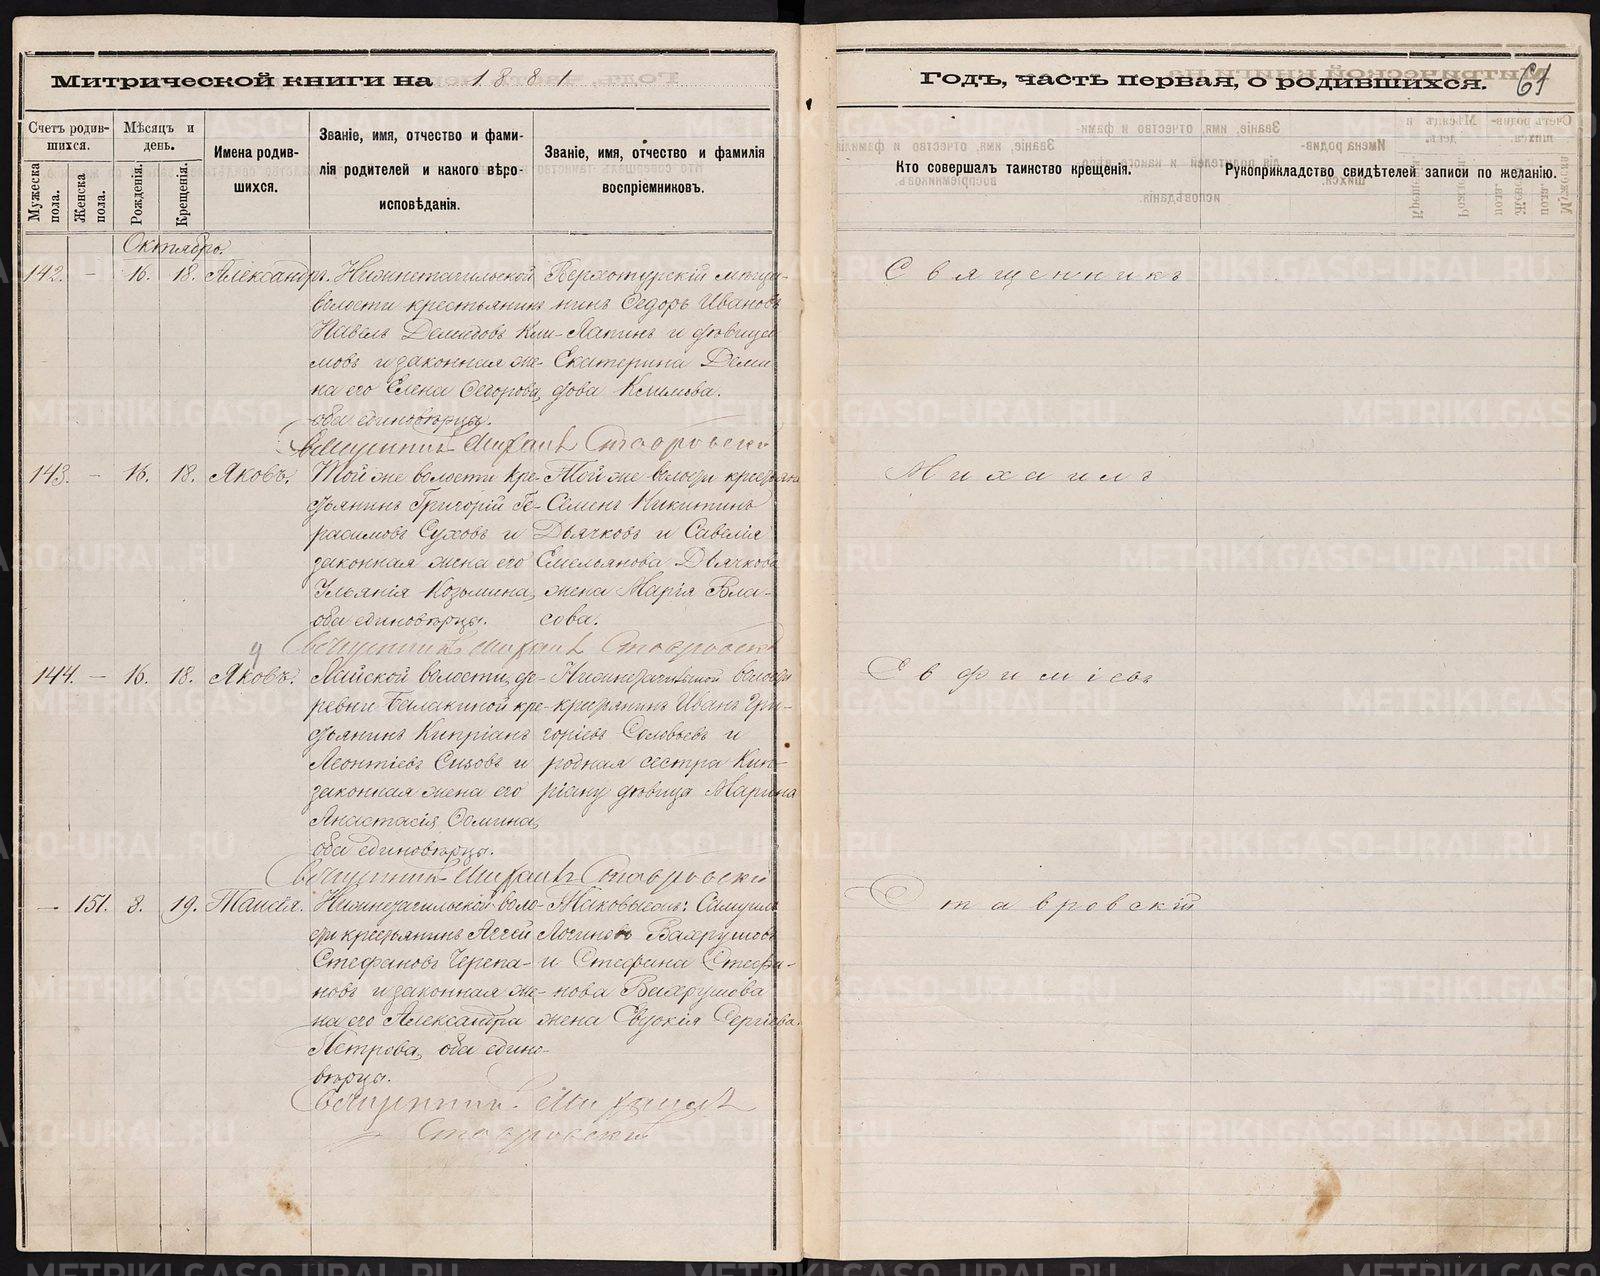 Митрической книги на 1881
Годъ, часть первая, о родившихся.
61
Счетъ родив-
шихся.
Мужеска
пола.
Женска
пола.
Мѣсяцъ и
день.
Рожденія.
Крещенія.
Имена родив-
шихся.
Званіе, имя, отчество и фами-
лія родителей и какого вѣро-
исповѣданія.
Званіе, имя, отчество и фамилія
воспріемниковъ.
Кто совершалъ таинство крещенія.
Рукоприкладство свидѣтелей записи по желанію.
Октябрь.
142. - 16. 18. Александръ.
Нижнетагильской
волости крестьянинъ
Павелъ Демидовъ Кли-
мовъ и законная же-
на его Елена Ѳедорова,
оба единовѣрцы.
Верхотурскій мѣща-
нинъ Ѳедоръ Ивановъ
Лапинъ и дѣвица
Екатерина Деми
дова Климова.
Священникъ Михаилъ Ставровскій
143. - 16. 18. Яковъ.
Той же волости кре-
стьянинъ Григорій Ге-
расимовъ Суховъ и
законная жена его
Ульянія Козьмина,
оба единовѣрцы.
Той же волости крестьяне
Семенъ Никитинъ
Дьячковъ и Савелія
Емельянова Дьячкова
жена Марія Вла-
сова.
Священникъ Михаилъ Ставровскій
144. - 16. 18. Яковъ.
Лайской волости, де-
ревни Балакиной кре-
стьянинъ Кипріанъ
Леонтіевъ Сизовъ и
законная жена его
Анастасія Ѳомина,
оба единовѣрцы.
Нижнетагильской волости
крестьянинъ Иванъ Гри-
горіевъ Соловьевъ и
родная сестра Кип-
ріану дѣвица Марина
Священникъ Михаилъ Ставровскій
- 151. 8. 19. Таисія.
Нижнетагильской воло-
сти крестьянинъ Алексѣй
Стефановъ Черепа-
новъ и законная же-
на его Александра
Петрова, оба едино-
вѣрцы.
Таковые же: Самуилъ
Логиновъ Вахрушовъ
и Стефана Стефа-
нова Вахрушова
жена Евдокія Сергіева.
Священникъ Михаилъ
Ставровскій
Священникъ
Михаилъ
Евфиміевъ
Ставровскій
METRIKI.GASO-URAL.RU